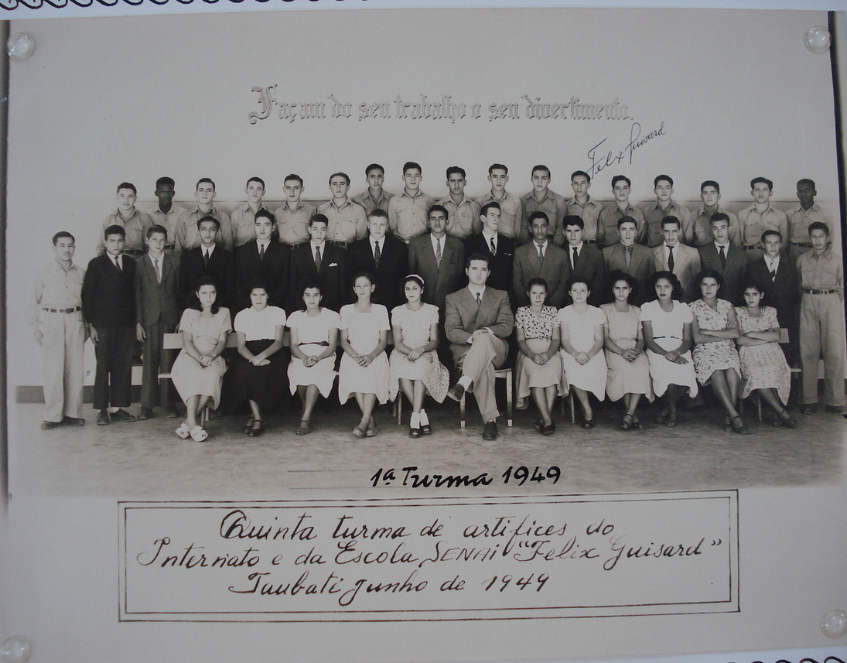 Façam do seu trabalho o seu divertimento.
Felix Guisard
1ª Turma 1949
Quinta turma de artifices do
Internato e da Escola SENAI "Felix Guisard"
Taubaté junho de 1949